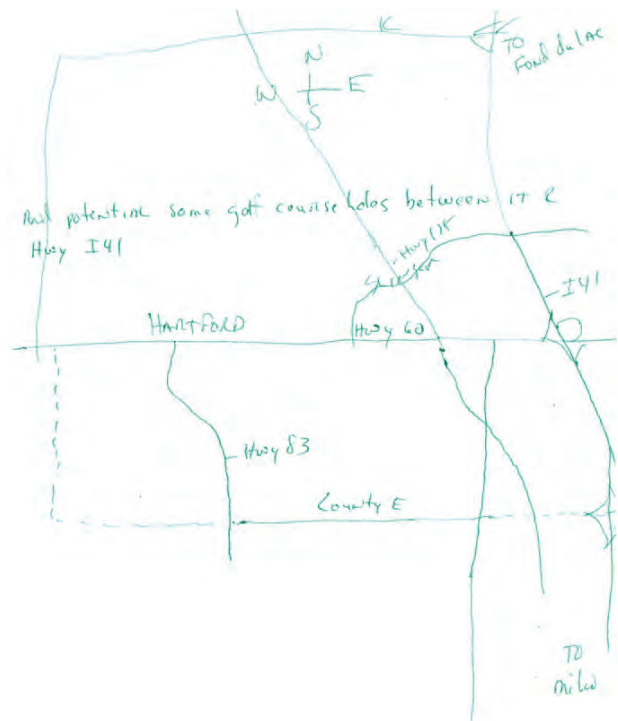 K
TO
Fond du LAC
N
W E
S
And potential some golf course holes between it &
Hwy I41
Hwy 175
I41
HARTFORD
Hwy 60
Hwy 83
County E
TO
milw